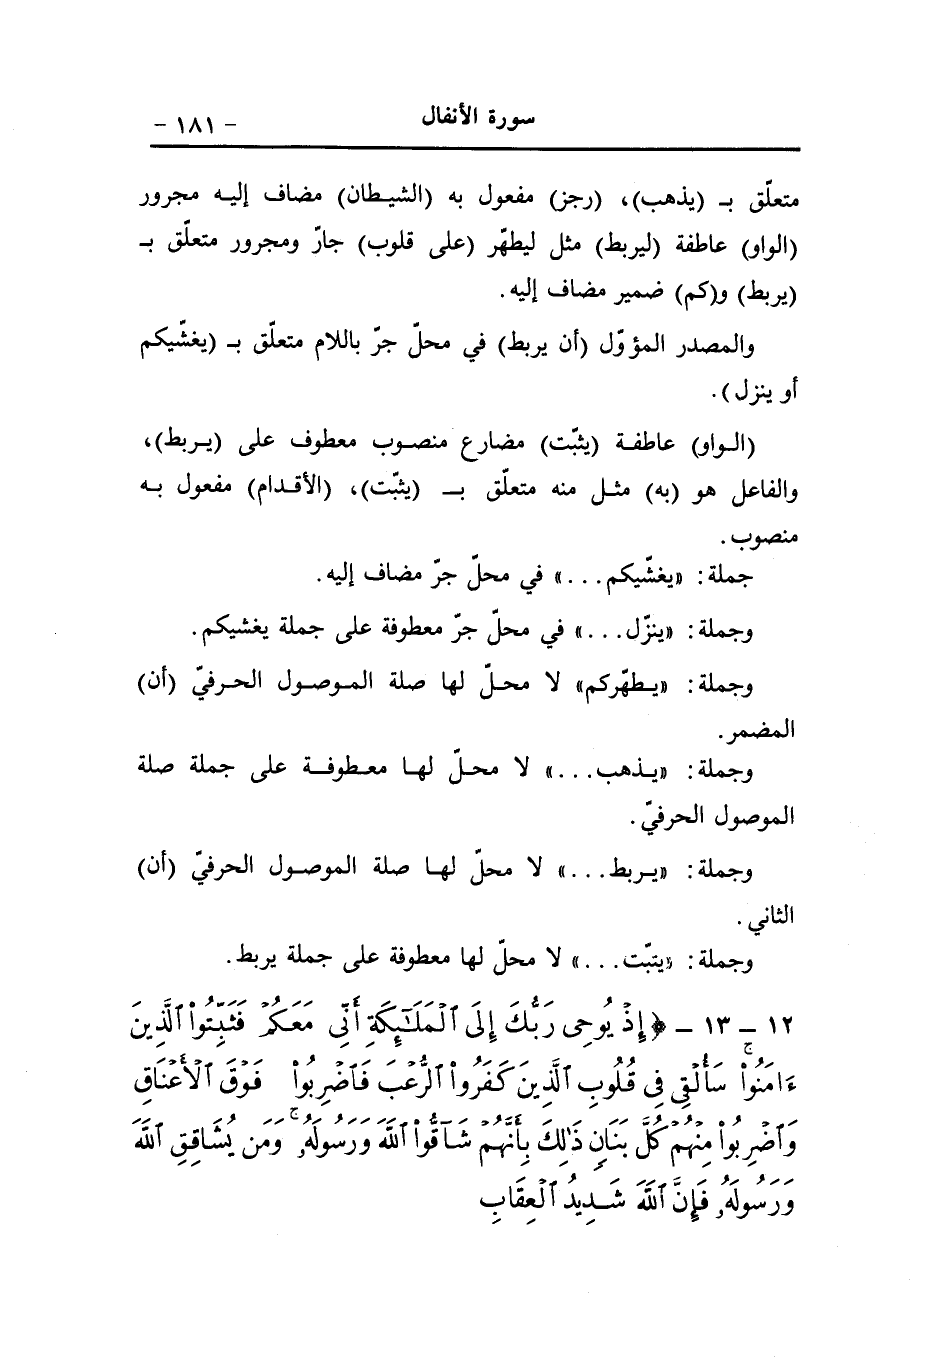 سورة الأنفال - ١٨١ -
متعلّق بـ (يذهب)، (رجز) مفعول به (الشيطان) مضاف إليه مجرور
(الواو) عاطفة (ليربط) مثل ليطهّر (على قلوب) جارّ ومجرور متعلّق بـ
(يربط) و(كم) ضمير مضاف إليه.
والمصدر المؤوّل (أن يربط) في محلّ جرّ باللام متعلّق بـ (يغشّيكم
أو ينزل).
(الواو) عاطفة (يثبّت) مضارع منصوب معطوف على (يربط)،
والفاعل هو (به) مثل منه متعلّق بـ (يثبّت)، (الأقدام) مفعول به
منصوب.
جملة: «يغشّيكم...» في محلّ جرّ مضاف إليه.
وجملة: «ينزّل...» في محلّ جرّ معطوفة على جملة يغشيكم.
وجملة: «يطهّركم» لا محلّ لها صلة الموصول الحرفيّ (أن)
المضمر.
وجملة: «يذهب...» لا محلّ لها معطوفة على جملة صلة
الموصول الحرفيّ.
وجملة: «يربط...» لا محلّ لها صلة الموصول الحرفيّ (أن)
الثاني.
وجملة: «يتبّت...» لا محلّ لها معطوفة على جملة يربط.
١٢ - ١٣ - ﴿إِذْ يُوحِى رَبُّكَ إِلَى ٱلْمَلَـٰٓئِكَةِ أَنِّى مَعَكُمْ فَثَبِّتُوا۟ ٱلَّذِينَ
ءَامَنُوا۟ ۚ سَأُلْقِى فِى قُلُوبِ ٱلَّذِينَ كَفَرُوا۟ ٱلرُّعْبَ فَٱضْرِبُوا۟ فَوْقَ ٱلْأَعْنَاقِ
وَٱضْرِبُوا۟ مِنْهُمْ كُلَّ بَنَانٍ ذَٰلِكَ بِأَنَّهُمْ شَآقُّوا۟ ٱللَّهَ وَرَسُولَهُۥ ۚ وَمَن يُشَاقِقِ ٱللَّهَ
وَرَسُولَهُۥ فَإِنَّ ٱللَّهَ شَدِيدُ ٱلْعِقَابِ